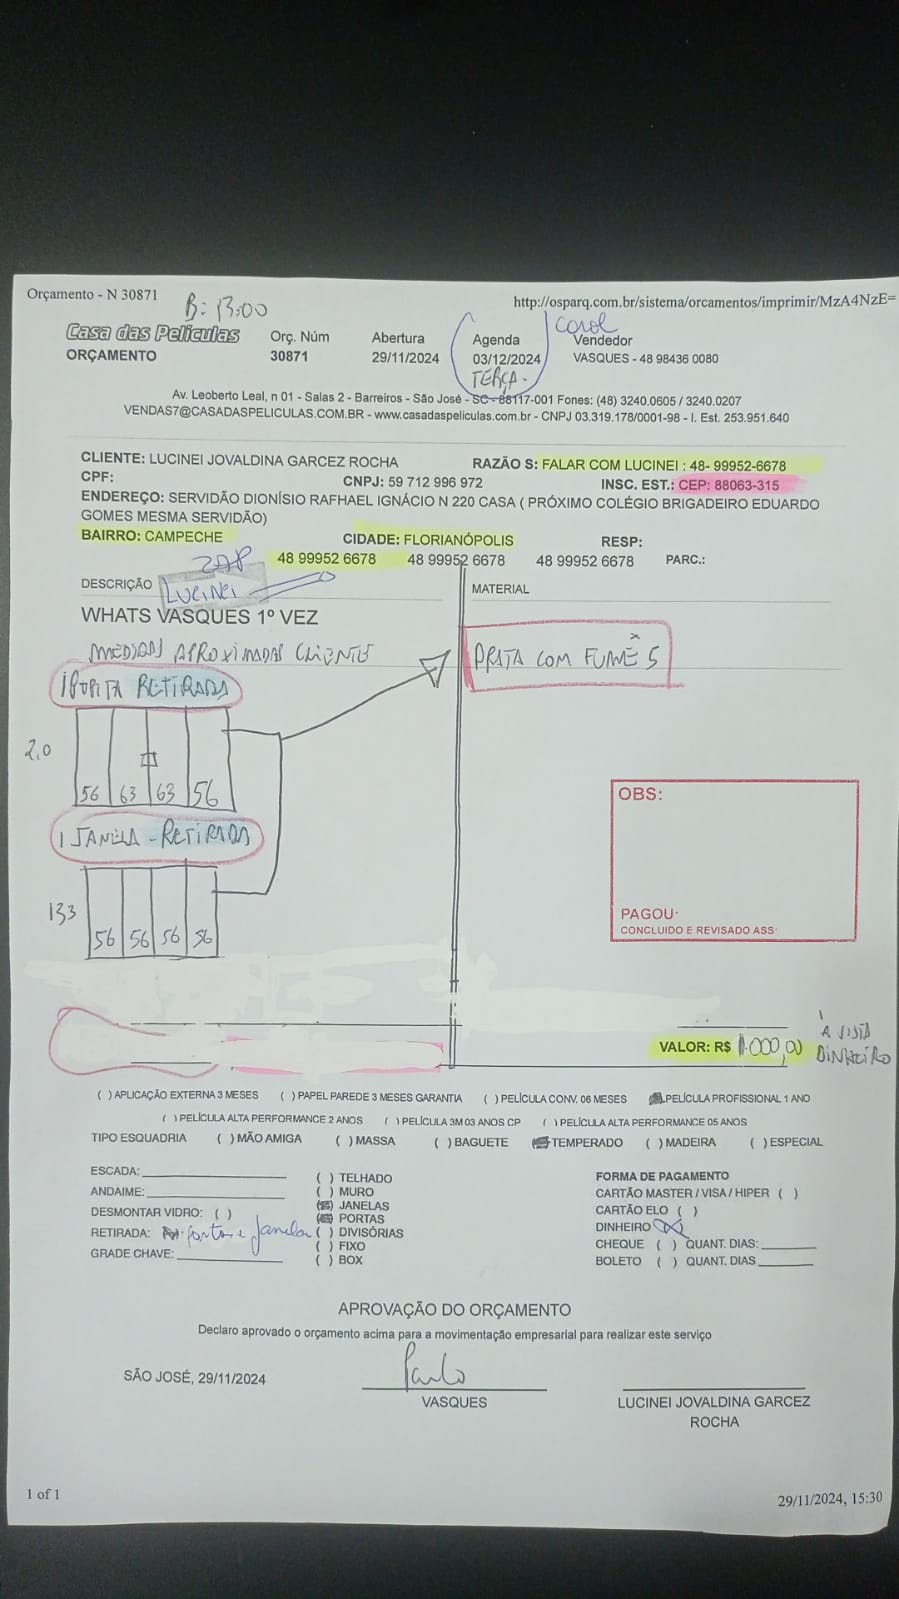 Orçamento - N 30871
http://osparq.com.br/sistema/orcamentos/imprimir/MzA4NzE=
B: 13:00
Carol
Casa das Películas
Orç. Núm
Abertura
Agenda
Vendedor
ORÇAMENTO
30871
29/11/2024
03/12/2024
VASQUES - 48 98436 0080
TERÇA -
Av. Leoberto Leal, n 01 - Salas 2 - Barreiros - São José - SC - 88117-001 Fones: (48) 3240.0605 / 3240.0207
VENDAS7@CASADASPELICULAS.COM.BR - www.casadaspeliculas.com.br - CNPJ 03.319.178/0001-98 - I. Est. 253.951.640
CLIENTE: LUCINEI JOVALDINA GARCEZ ROCHA
RAZÃO S: FALAR COM LUCINEI : 48- 99952-6678
CPF:
CNPJ: 59 712 996 972
INSC. EST.: CEP: 88063-315
ENDEREÇO: SERVIDÃO DIONÍSIO RAFHAEL IGNÁCIO N 220 CASA ( PRÓXIMO COLÉGIO BRIGADEIRO EDUARDO
GOMES MESMA SERVIDÃO)
BAIRRO: CAMPECHE
CIDADE: FLORIANÓPOLIS
RESP:
ZAP
48 99952 6678
48 99952 6678
48 99952 6678
PARC.:
DESCRIÇÃO
LUCINEI
MATERIAL
WHATS VASQUES 1º VEZ
MEDIDAS APROXIMADAS CLIENTE
PRATA COM FUMÊ 5
1 PORTA RETIRADA
2,0
56 63 63 56
1 JANELA - RETIRADA
133
56 56 56 56
OBS:
PAGOU:
CONCLUIDO E REVISADO ASS:
VALOR: R$ 1.000,00
À VISTA
DINHEIRO
( ) APLICAÇÃO EXTERNA 3 MESES ( ) PAPEL PAREDE 3 MESES GARANTIA ( ) PELÍCULA CONV. 06 MESES PELÍCULA PROFISSIONAL 1 ANO
( ) PELÍCULA ALTA PERFORMANCE 2 ANOS ( ) PELÍCULA 3M 03 ANOS CP ( ) PELÍCULA ALTA PERFORMANCE 05 ANOS
TIPO ESQUADRIA ( ) MÃO AMIGA ( ) MASSA ( ) BAGUETE TEMPERADO ( ) MADEIRA ( ) ESPECIAL
ESCADA:
ANDAIME:
DESMONTAR VIDRO: ( )
RETIRADA: porta e Janela
GRADE CHAVE:
( ) TELHADO
( ) MURO
JANELAS
PORTAS
( ) DIVISÓRIAS
( ) FIXO
( ) BOX
FORMA DE PAGAMENTO
CARTÃO MASTER / VISA / HIPER ( )
CARTÃO ELO ( )
DINHEIRO (X)
CHEQUE ( ) QUANT. DIAS:
BOLETO ( ) QUANT. DIAS
APROVAÇÃO DO ORÇAMENTO
Declaro aprovado o orçamento acima para a movimentação empresarial para realizar este serviço
SÃO JOSÉ, 29/11/2024
Paulo
VASQUES
LUCINEI JOVALDINA GARCEZ
ROCHA
1 of 1
29/11/2024, 15:30